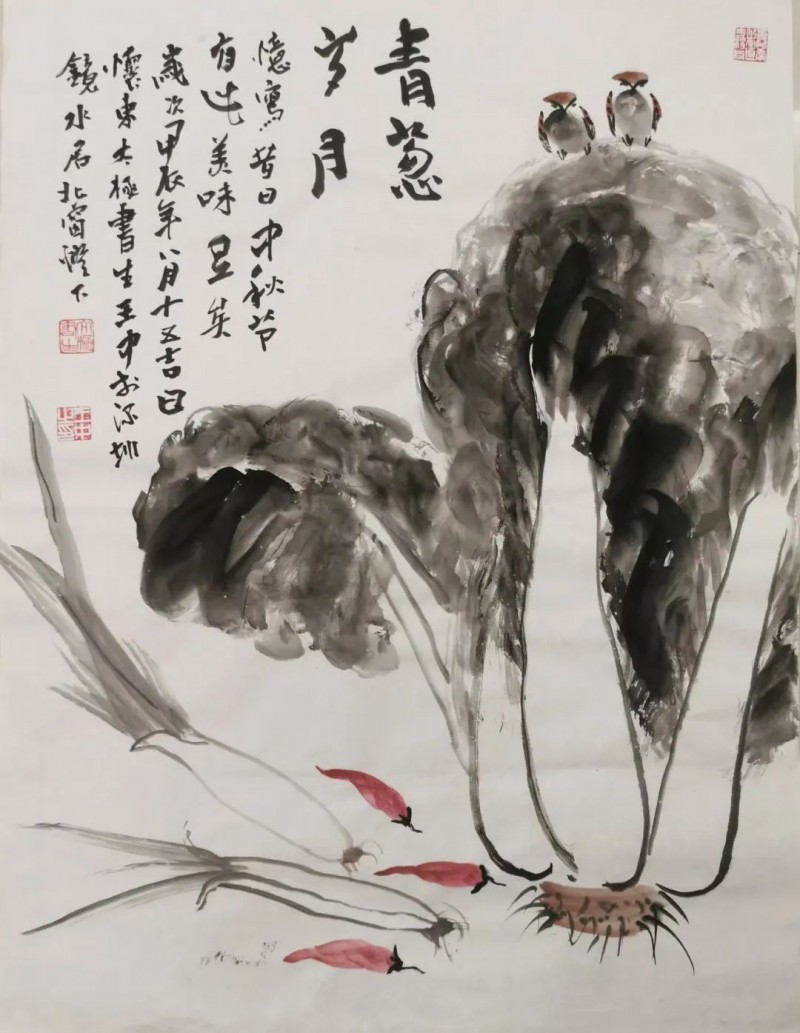 青葱
岁月
憶寫昔日中秋节
有此美味足矣
歲次甲辰年八月十五吉日
懷東太極書生王中於深圳
鏡水居北窗燈下